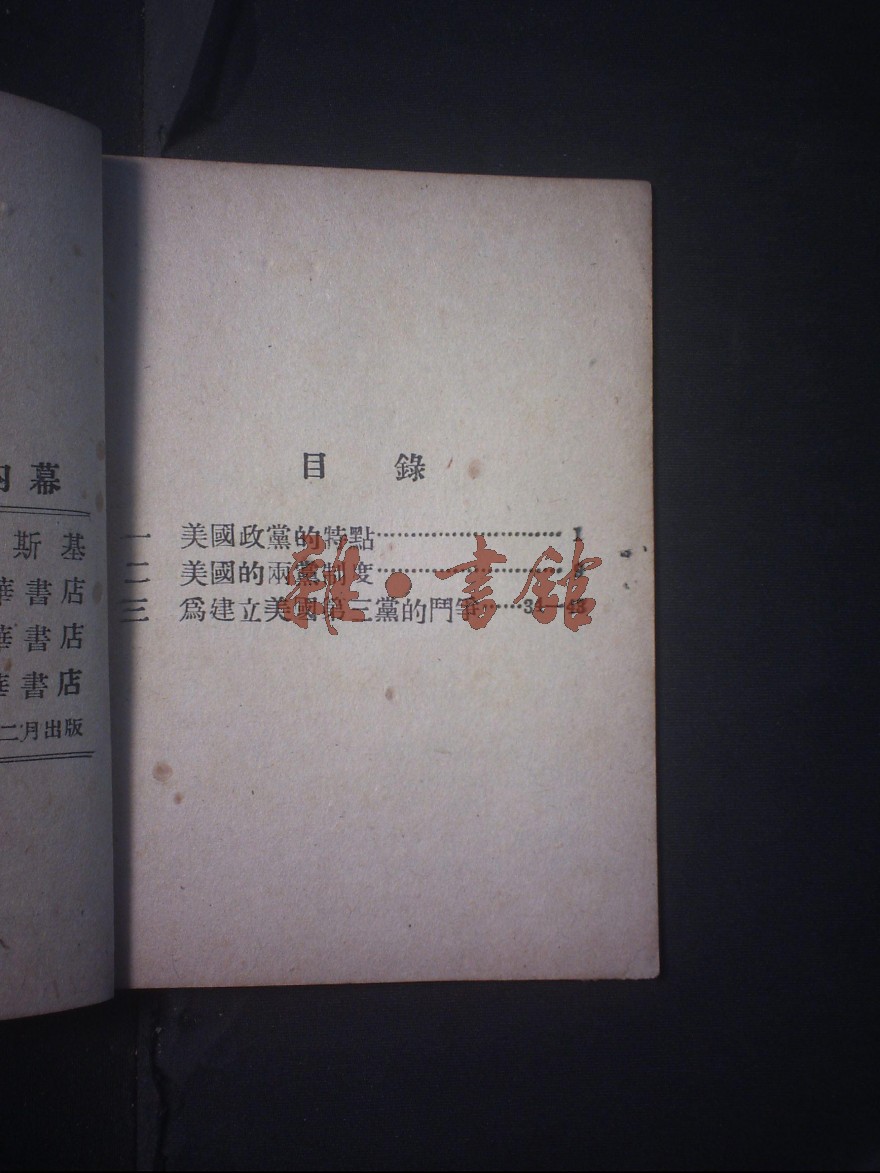 內幕
斯基
華書店
華書店
華書店
二月出版
目錄
一 美國政黨的特點……………………1
二 美國的兩黨制度……………………
三 爲建立美國第三黨的鬥爭……34—43
雜·書館